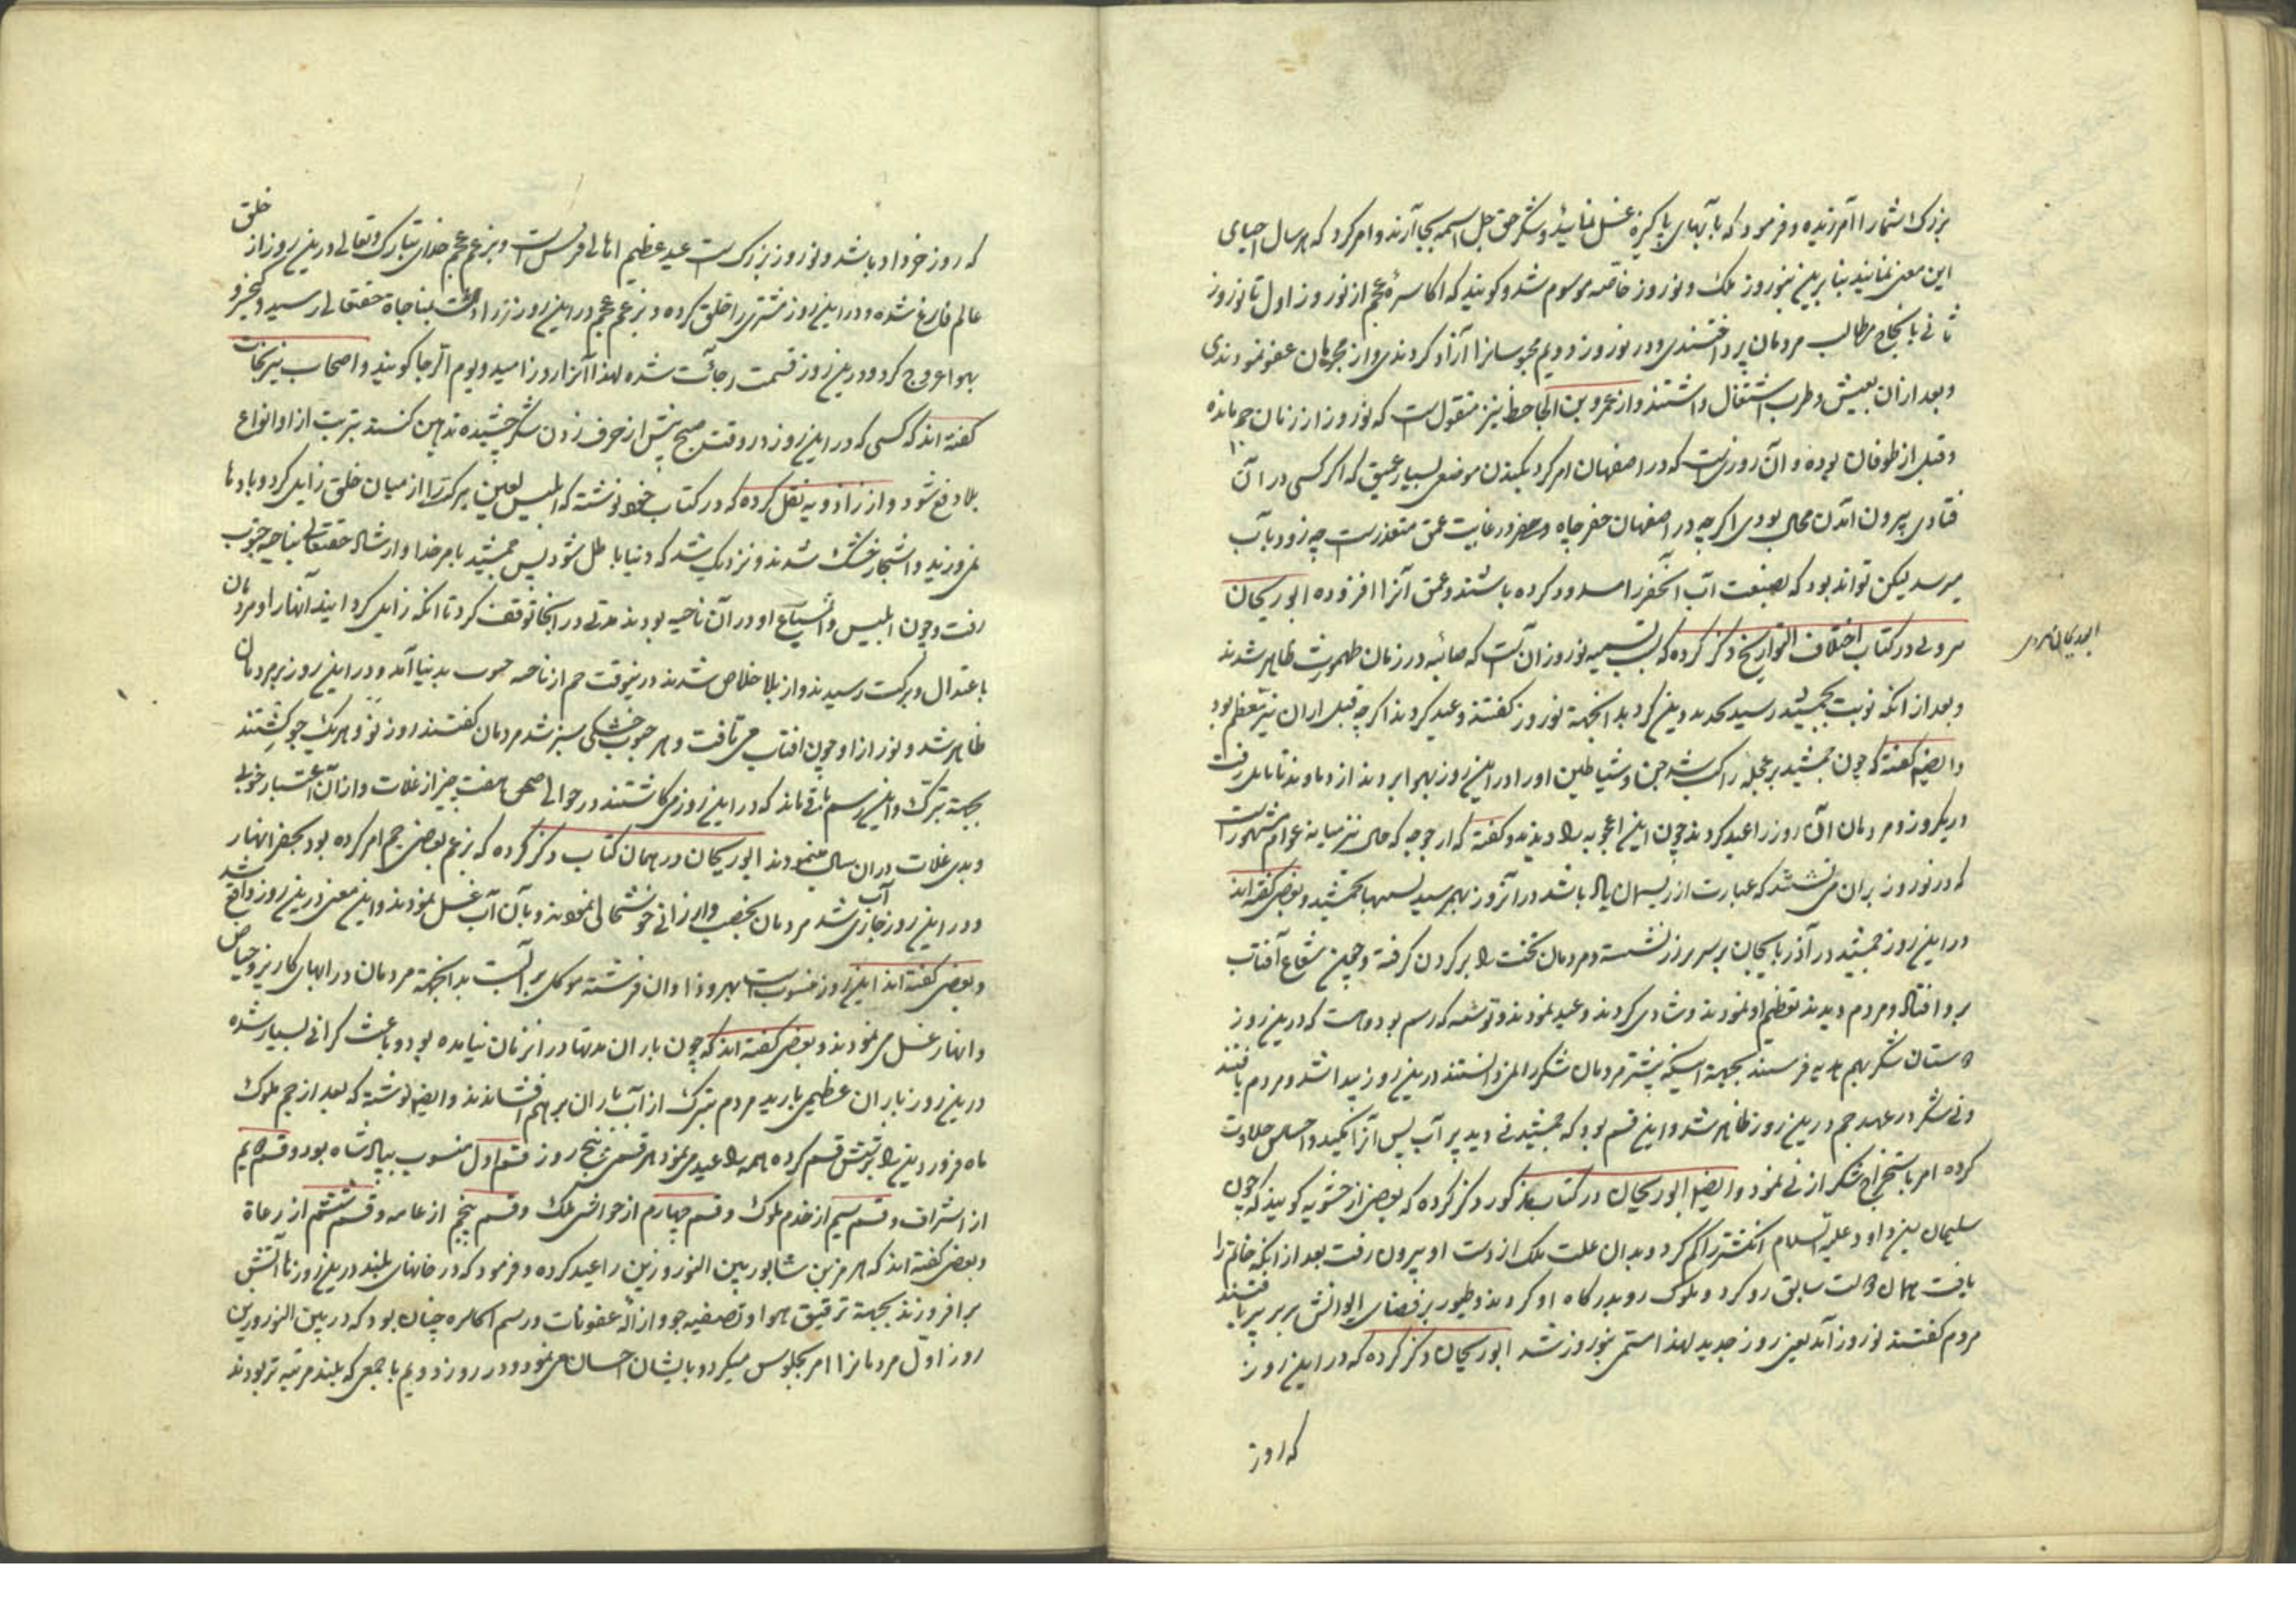 بزرک شما را آمرزیده و فرمود که با آبهای پاکیزه غسل نمایید و شکر حق جل اسمه بجا آرند و امر کرد که هر سال احیای
این معنی نمایند بنابرین بنوروز ملک و نوروز خاصه موسوم شد و کویند که اکاسرهٔ عجم از نوروز اول تا نوروز
ثانی بانجاح مطالب مردمان پرداختندی و در نوروز دویم محبوسانرا آزاد کردندی و از مجرمان عفو نمودندی
و بعد از ان بعیش و طرب اشتغال داشتند و از عمرو بن الجاحظ نیز منقول است که نوروز از زمان جم مانده
و قبل از طوفان بوده و آن روزیست که در اصفهان امر کرد بکندن موضعی بسیار عمیق که اکر کسی در آن
فتادی بیرون آمدن محال بودی اکر چه در اصفهان حفر چاه در غایت عمق متعذر است چه زود بآب
میرسد لیکن تواند بود که بصنعت آب آنحفر را مسدود کرده باشند و عمق آنرا افزوده ابو ریحان
هروی در کتاب اختلاف التواریخ ذکر کرده که سبب تسمیه نوروز آن است که صائبه در زمان طهمورث ظاهر شدند
و بعد از انکه نوبت بجمشید رسید تجدید دین کرد بدانجهة نوروز کفتند و عید کردند اکر چه قبل از ان نیز معظم بود
و ایضا کفته که چون جمشید بر عجله راکب شد جن و شیاطین او را در این روز بهوا بردند از دماوند تا بابل رفت
در یکروز و مردمان آن روز را عید کردند چون این اعجوبه را دیدند و کفته که ارجوحه که حالی نیز میانه عوام مشهور است
که در نوروز بر ان می نشینند که عبارت از ریسمان باد باشد در آنروز بهم رسید تشبیها بجمشید و بعضی کفته اند
در این روز جمشید در آذربایجان بر سریر زر نشسته و مردمان تخت را بر کردن کرفته و چون شعاع آفتاب
برو افتاد و مردم دیدند تعظیم او نمودند و شادی کردند و عید نمودند و نوشته که رسم بوده است که درین روز
دوستان شکر بهم هدیه فرستند بجهة اینکه پیشتر مردمان شکر را نمیدانستند درین روز پیدا شد و مردم یافتند
و نی شکر در عهد جم درین روز ظاهر شد و این قسم بود که جمشید نی دید پر آب پس آنرا مکید و احساس حلاوت
کرده امر باستخراج شکر از نی نمود و ایضا ابو ریحان در کتاب مذکور ذکر کرده که بعضی از حشویه کویند که چون
سلیمان بن داود علیه السلام انکشتر را کم کرد و بدان علت ملک از دست او بیرون رفت بعد از انکه خاتم را
یافت بهمان حالت سابق رو کرد و ملوک رو بدرکاه او کردند و طیور بر فضای ایوانش پر بر پر بافتند
مردم کفتند نوروز آمد یعنی روز جدید لهذا مسمی بنوروز شد ابو ریحان ذکر کرده که در این روز
که روز
ابو ریحان هروی
که روز خرداد باشد و نوروز بزرک است عید عظیم اهالی فرس است و بزعم عجم خدای تبارک و تعالی درین روز از خلق
عالم فارغ شده و در این روز مشتری را خلق کرده و بزعم عجم در این روز زرادشت بمناجاة حقتعالی رسید و کیخسرو
بهوا عروج کرد و درین روز قسمت رجائت شده لهذا آنرا روز امید و یوم الرجا کویند و اصحاب نیرنجات
کفته اند که کسی که در این روز در وقت صبح پیش از حرف زدن شکر چشیده تدهین کند بزیت از او انواع
بلا دفع شود و از زادویه نقل کرده که در کتاب خود نوشته که ابلیس لعین برکت را از میان خلق زایل کرد و بادها
نمی وزید و اشجار خشک شدند و نزدیک شد که دنیا باطل شود پس جمشید بامر خدا و ارشاد حقتعالی بناحیه جنوب
رفت و چون ابلیس و اشیاع او در آن ناحیه بودند مدتی در انجا توقف کرد تا انکه زایل کردانید آنها را و مردمان
باعتدال و برکت رسیدند و از بلا خلاص شدند درینوقت جم از ناحیه جنوب بدنیا آمد و در این روز بر مردمان
ظاهر شد و نور از او چون افتاب می تافت و هر چوب خشکی سبز شد مردمان کفتند روز نو و هر یک جو کشتند
بجهة تبرک و این رسم باقی ماند که در این روز می کاشتند در حوالی صحن هفت چیز از غلات و از آن اعتبار خوبی
و بدی غلات در ان سال مینمودند ابو ریحان در همان کتاب ذکر کرده که بزعم بعضی جم امر کرده بود بحفر انهار
و در این روز آب جاری شد مردمان بخصب و ارزانی خوشحالی نمودند و بآن آب غسل نمودند و این معنی درین روز واقع شد
و بعضی کفته اند این روز منسوب است بهروذا و ان فرشته موکل بر آبست بدانجهة مردمان در ابهای کاریز و حیاض
و انهار غسل می نمودند و بعضی کفته اند که چون باران مدتها در انزمان نیامده بود و باعث کرانی بسیار شده
درین روز باران عظیمی بارید مردم بتبرک از آب باران بر بهم افشاندند و ایضا نوشته که بعد از جم ملوک
ماه فروردین را بر شش قسم کرده همه را عید می نمود هر قسمی پنج روز قسم اول منسوب بپادشاه بود و قسم دویم
از اشراف و قسم سیم از خدم ملوک و قسم چهارم از خواص ملک و قسم پنجم از عامه و قسم ششم از رعاة
و بعضی کفته اند که هرمز بن شاپور بین النوروزین را عید کرده و فرمود که در خانهای بلند درین روزها آتش
بر افروزند بجهة ترقیق هوا و تصفیه جو و ازاله عفونات و رسم اکاسره چنان بود که در بین النوروزین
روز اول مردمانرا امر بجلوس میکرد و بایشان احسان می نمود و در روز دویم با جمعی که بلند مرتبه تر بودند